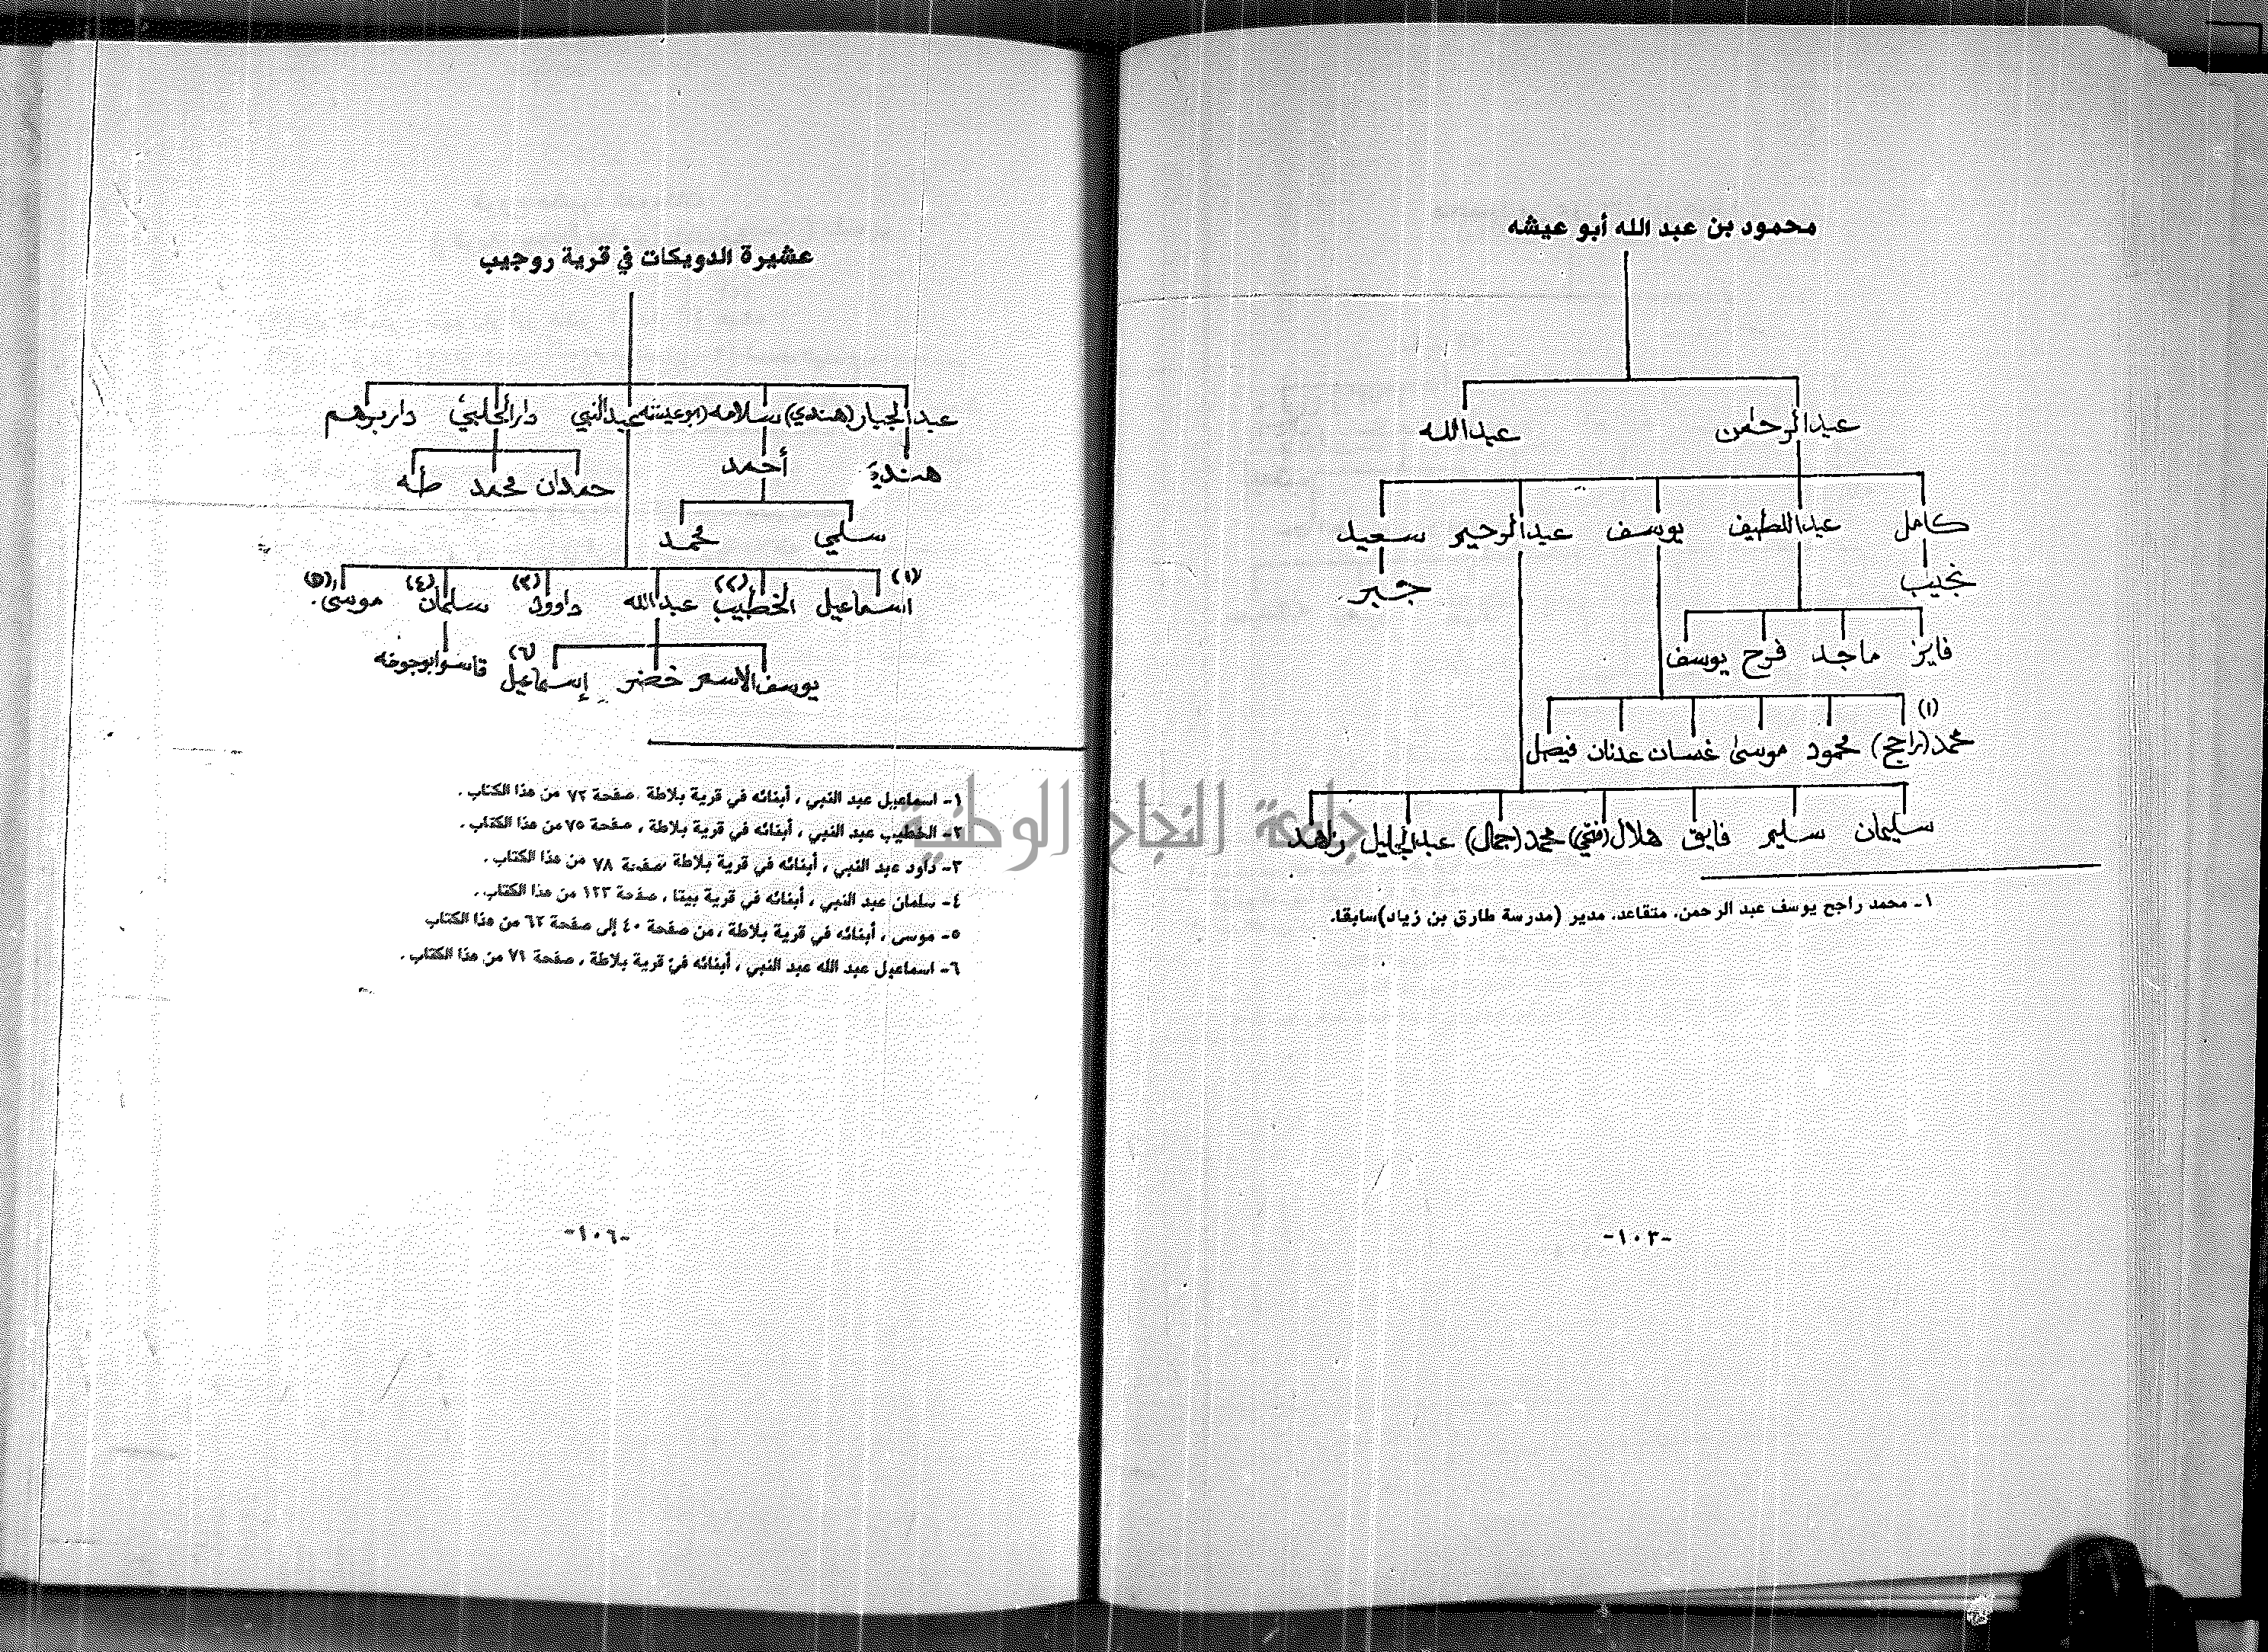 محمود بن عبد الله أبو عيشه
عبدالرحمن عبدالله
كامل عبداللطيف يوسف عبدالرحيم سعيد
نجيب جبر
فايز ماجد فرح يوسف
(١)
محمد(راجح) محمود موسى غسان عدنان فيصل
سليمان سليم فايق هلال(فتحي) محمد(جمال) عبدالجليل زاهد
١ـ محمد راجح يوسف عبد الرحمن. متقاعد. مدير (مدرسة طارق بن زياد)سابقا.
-١٠٣-
عشيرة الدويكات في قرية روجيب
عبدالجبار(هندي) سلامه(ابوعيشه) عبدالنبي دارالحلبي داربرهم
أحمد
حمدان محمد طه
سلمي محمد
(١) (٢) (٣) (٤) (٥)
اسماعيل الخطيب عبدالله داوود سلمان موسى.
(٦)
يوسف الاسمر خضر إسماعيل
١- اسماعيل عبد النبي ، أبنائه في قرية بلاطة . صفحة ٧٢ من هذا الكتاب .
٢- الخطيب عبد النبي ، أبنائه في قرية بلاطة ، صفحة ٧٥ من هذا الكتاب .
٣- داود عبد النبي ، أبنائه في قرية بلاطة صفحة ٧٨ من هذا الكتاب .
٤- سلمان عبد النبي ، أبنائه في قرية بيتا ، صفحة ١٢٣ من هذا الكتاب .
٥- موسى ، أبنائه في قرية بلاطة ، من صفحة ٤٠ إلى صفحة ٦٢ من هذا الكتاب
٦- اسماعيل عبد الله عبد النبي ، أبنائه في قرية بلاطة ، صفحة ٧١ من هذا الكتاب .
-١٠٦-
جامعة النجاح الوطنية